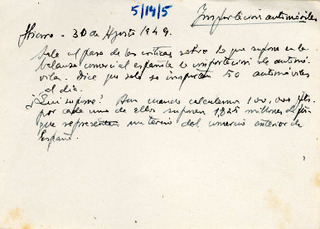 5/14/5
Importación automóviles
30 de Agosto 1949.
Sale al paso de las críticas sobre lo que supone en la
balanza comercial española la importación de automó-
vila. Dice que solo se importan 50 automóviles
al día.
¿Qué supone? Aun cuando calculemos 100.000 pts.
por cada uno de ellos suponen 1825 millones de pts
que representan un tercio del comercio anterior de
España.